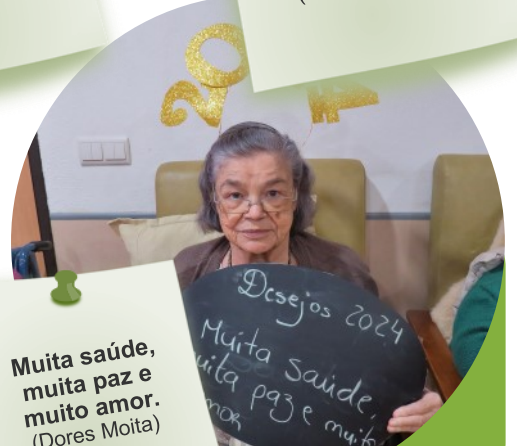 20
Desejos 2024
Muita saúde,
uita paz e muito
mor
Muita saúde,
muita paz e
muito amor.
(Dores Moita)